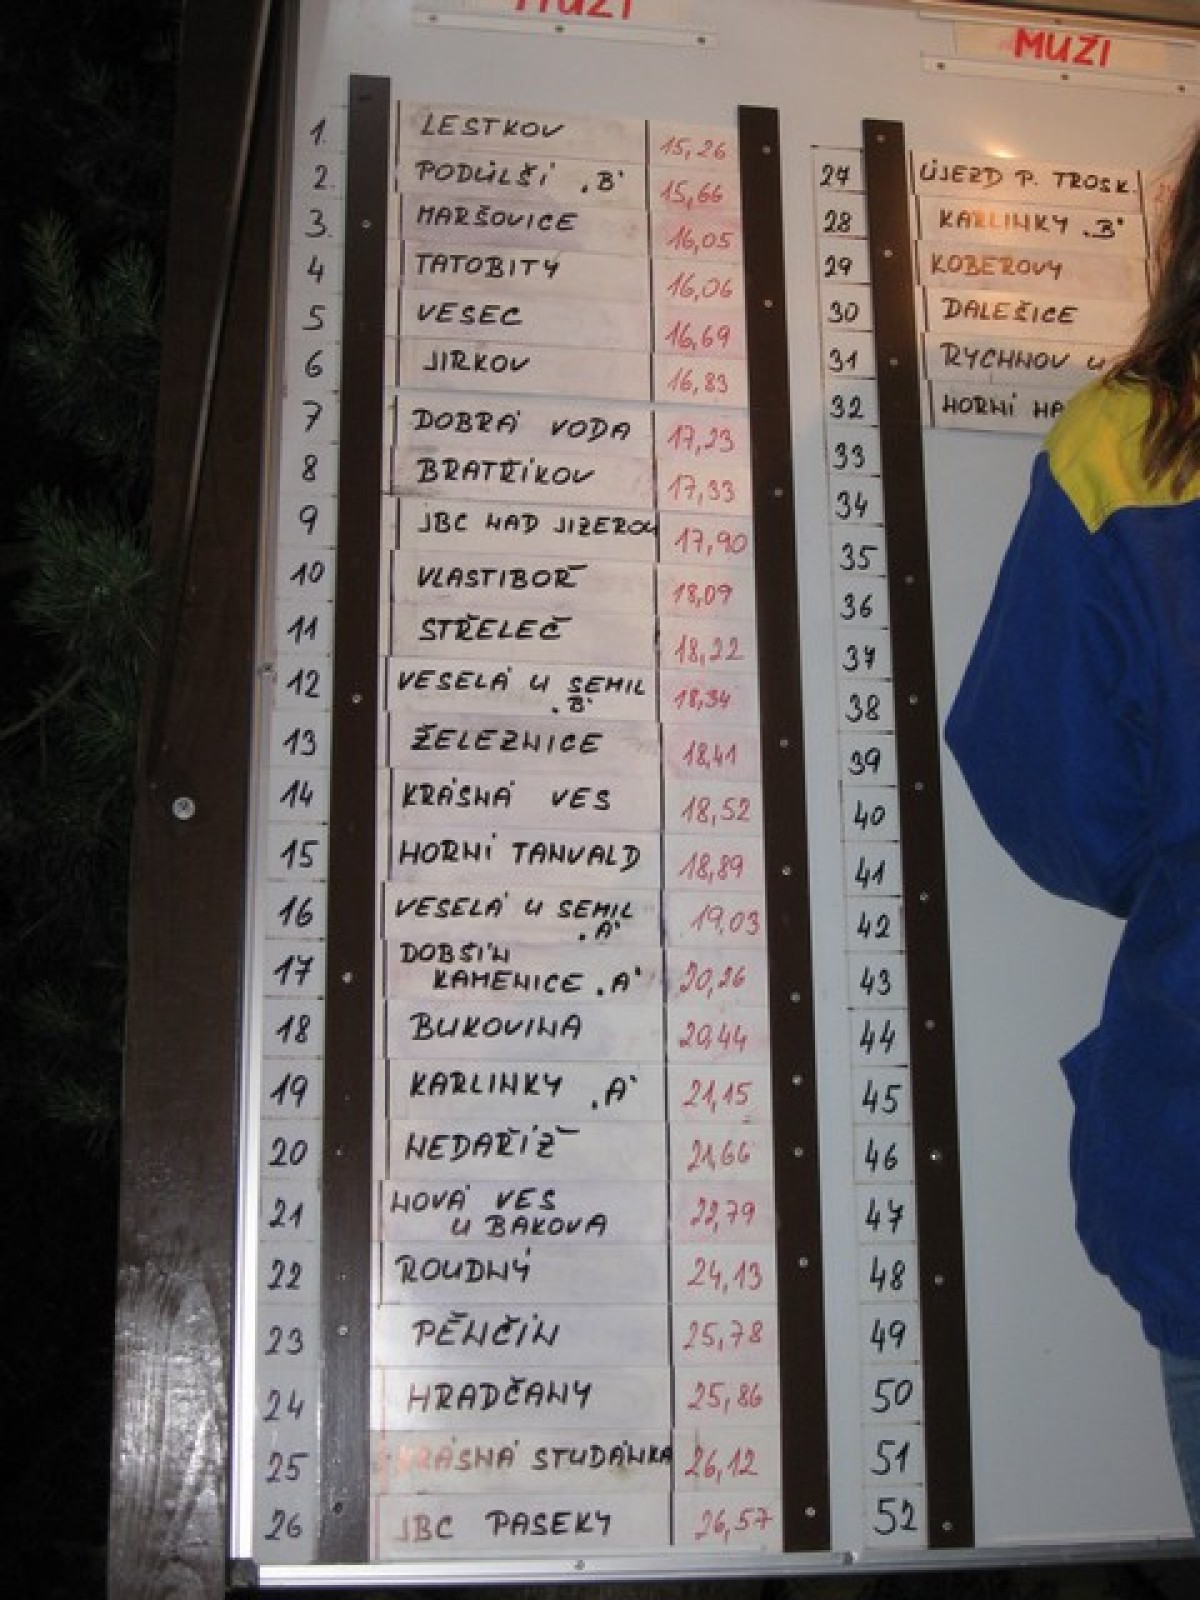 MUŽI
1. LESTKOV 15,26
2. PODŮLŠÍ „B" 15,66
3. MARŠOVICE 16,05
4 TATOBITY 16,06
5 VESEC 16,69
6 JIRKOV 16,83
7 DOBRÁ VODA 17,23
8 BRATŘÍKOV 17,33
9 JBC NAD JIZEROU 17,90
10 VLASTIBOŘ 18,09
11 STŘELEČ 18,22
12 VESELÁ U SEMIL 18,34
„B"
13 ŽELEZNICE 18,41
14 KRÁSNÁ VES 18,52
15 HORNÍ TANVALD 18,89
16 VESELÁ U SEMIL 19,03
„A"
DOBŠÍN
17 KAMENICE „A" 20,26
18 BUKOVINA 20,44
19 KARLINKY „A" 21,15
20 NEDAŘÍŽ 21,66
21 NOVÁ VES 22,79
U BAKOVA
22 ROUDNÝ 24,13
23 PĚNČÍN 25,78
24 HRADČANY 25,86
25 KRÁSNÁ STUDÁNKA 26,12
26 JBC PASEKY 26,57
MUŽI
27 ÚJEZD P. TROSK.
28 KARLINKY „B"
29 KOBEROVY
30 DALEŠICE
31 RYCHNOV U
32 HORNÍ HA
33
34
35
36
37
38
39
40
41
42
43
44
45
46
47
48
49
50
51
52